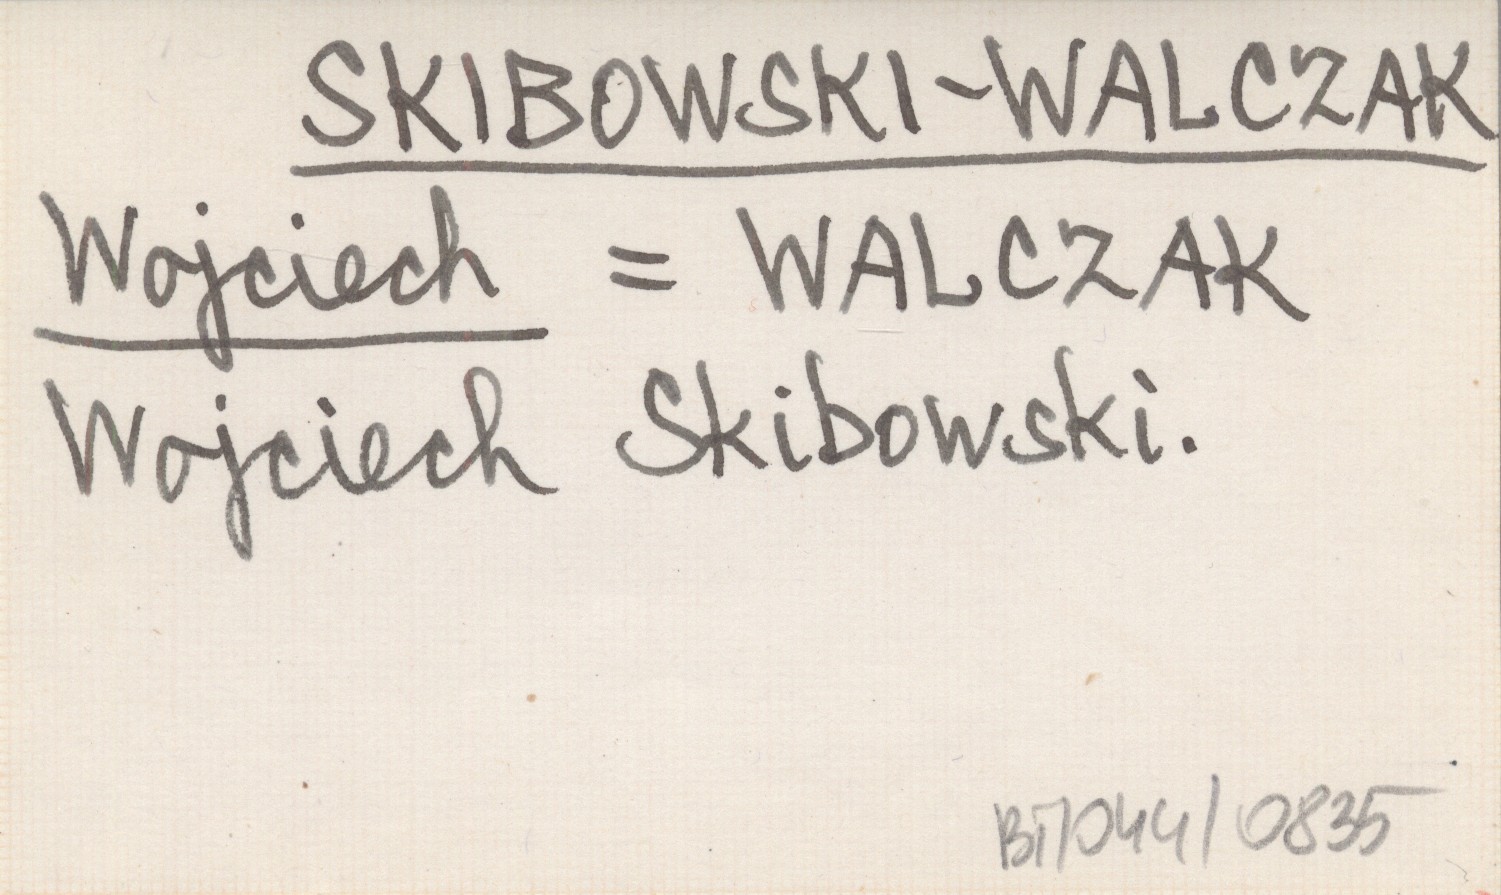 SKIBOWSKI-WALCZAK
Wojciech = WALCZAK
Wojciech Skibowski.
BI/044/0835